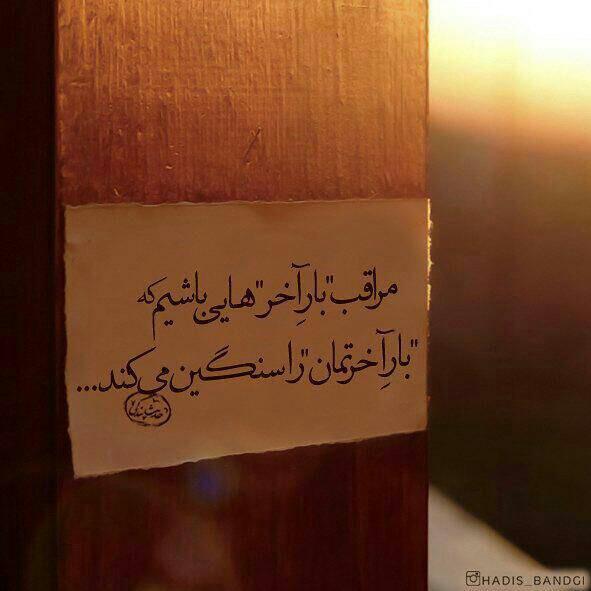 مراقب "بارِ آخر" هایی باشیم که
"بارِ آخرتمان" را سنگین می کند...
حدیث بندگی
HADIS_BANDGI